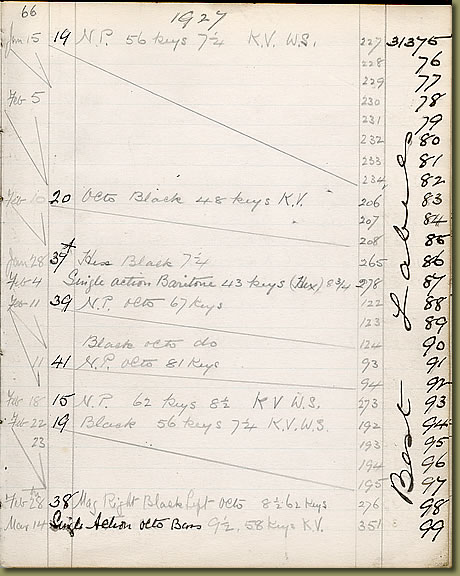 66
1927
Jan 15 19 N.P. 56 keys 7¼ K.V. W.S. 227 31375
228 76
229 77
Feb 5 230 78
231 79
232 80
233 81
234 82
20 Octo Black 48 keys K.V. 206 83
207 84
208 85
Jan 28 39 Hex Black 7¼ 265 86
Feb 4 Single action Baritone 43 keys (Hex) 8¾ 278 87
Feb 11 39 N.P. Octo 67 keys 122 88
123 89
Black octo do 124 90
11 41 N.P. Octo 81 keys 93 91
94 92
Feb 18 15 N.P. 62 keys 8½ K V W.S. 273 93
Feb 22 19 Black 56 keys 7¼ K.V. W.S. 192 94
23 193 95
194 96
195 97
Feb 28 38 Mag Right Black Left Octo 8½ 62 keys 276 98
Mar 14 Single Action octo Bass 9½, 58 keys K.V. 351 99
Best Labels